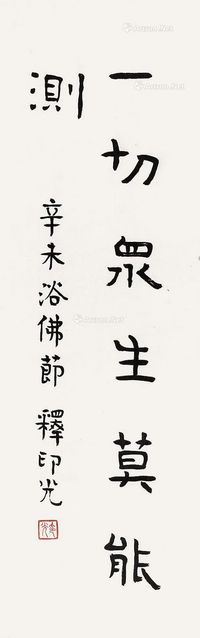 一切眾生莫能
測
辛未浴佛節 釋印光